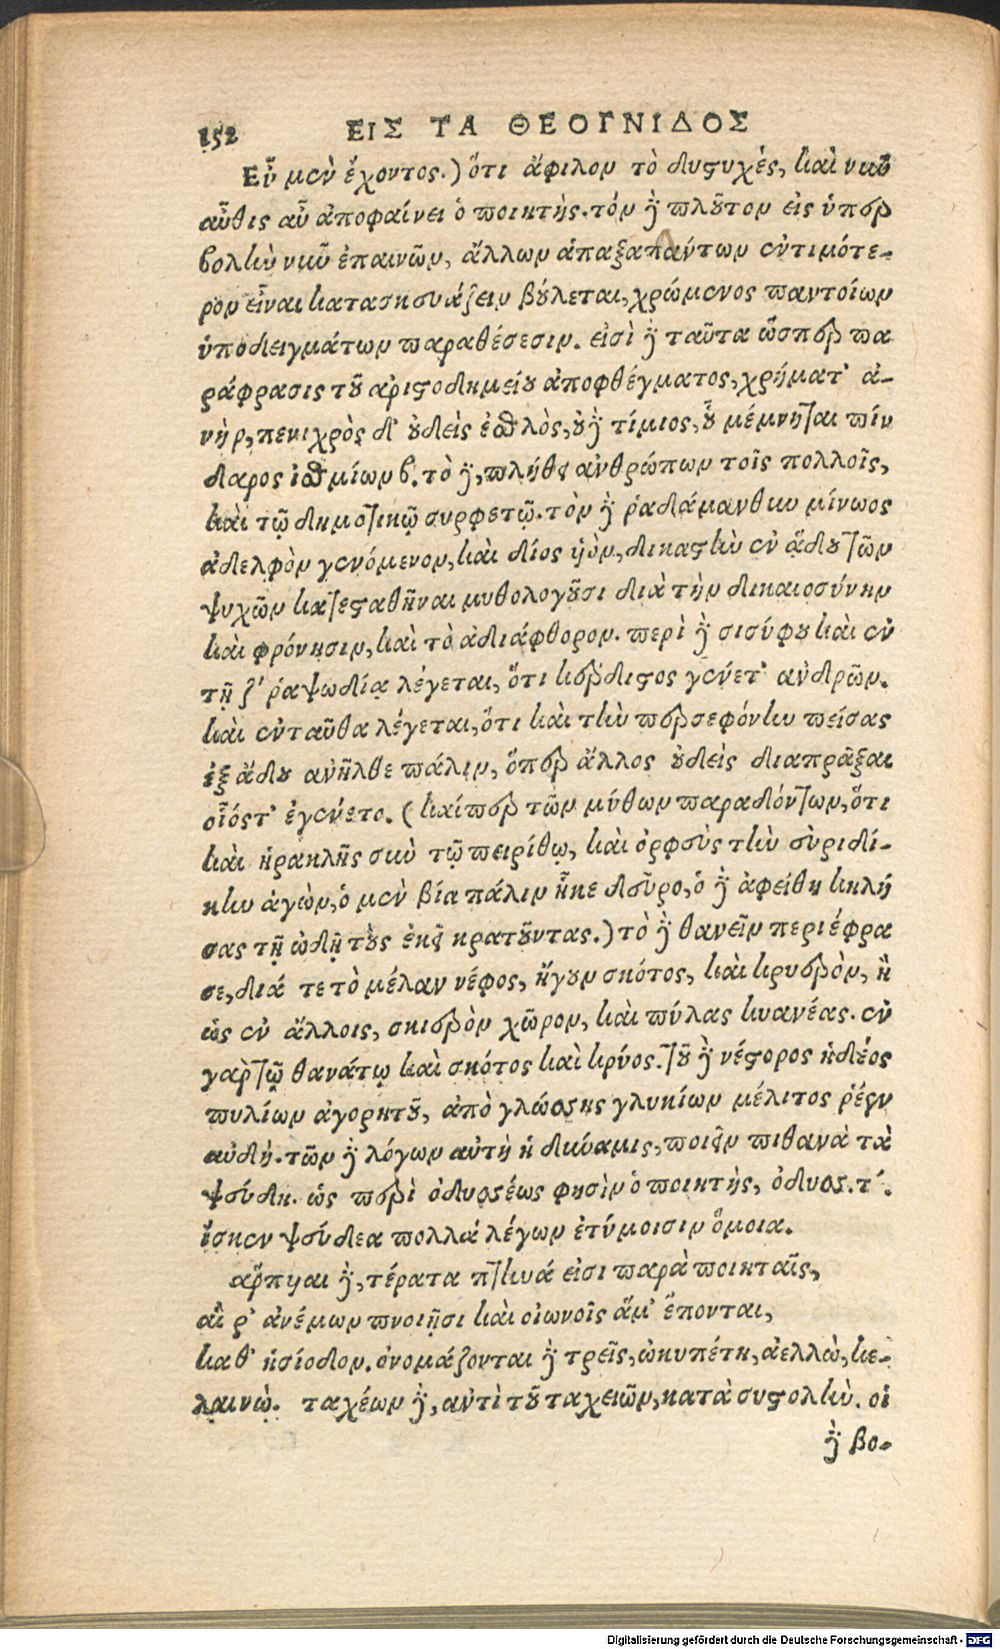 152 ΕΙΣ ΤΑ ΘΕΟΓΝΙΔΟΣ
Εὖ μὲν ἔχοντος.) ὅτι ἄφιλον τὸ δυστυχὲς, καὶ νῦν
αὖθις αὖ ἀποφαίνει ὁ ποιητής. τὸν δὲ πλοῦτον εἰς ὑπερ
βολὴν νῦν ἐπαινῶν, ἄλλων ἁπαξαπάντων ἐντιμότε-
ρον εἶναι κατασκευάζειν βούλεται, χρώμενος παντοίων
ὑποδειγμάτων παραθέσεσιν. εἰσὶ δὲ ταῦτα ὥσπερ πα
ράφρασις τοῦ ἀριστοδημείου ἀποφθέγματος, χρήματ' ἀ-
νὴρ, πενιχρὸς δ' οὐδεὶς ἐσθλὸς, οὐδὲ τίμιος, οὗ μέμνηται πίν
δαρος ἰσθμίων β. τὸ δὲ, πλήθει ἀνθρώπων τοῖς πολλοῖς,
καὶ τῷ δημοτικῷ συρφετῷ. τὸν δὲ ῥαδάμανθυν μίνωος
ἀδελφὸν γενόμενον, καὶ δίος ὑὸν, δικαστὴν ἐν ᾅδου τῶν
ψυχῶν κατεσταθῆναι μυθολογοῦσι διὰ τὴν δικαιοσύνην
καὶ φρόνησιν, καὶ τὸ ἀδιάφθορον. περὶ δὲ σισύφου καὶ ἐν
τῇ ζ' ῥαψωδίᾳ λέγεται, ὅτι κέρδιστος γένετ' ἀνδρῶν.
καὶ ἐνταῦθα λέγεται, ὅτι καὶ τὴν περσεφόνην πείσας
ἐξ ᾅδου ἀνῆλθε πάλιν, ὅπερ ἄλλος οὐδεὶς διαπρᾶξαι
οἷόστ' ἐγένετο. (καίπερ τῶν μύθων παραδόντων, ὅτι
καὶ ἡρακλῆς σὺν τῷ πειρίθῳ, καὶ ὀρφεὺς τὴν εὐριδί-
κην ἀγὼν, ὁ μὲν βίᾳ πάλιν ἧκε δεῦρο, ὁ δὲ ἀφείθη κηλή
σας τῇ ὠδῇ τοὺς ἐκεῖ κρατοῦντας.) τὸ δὲ θανεῖν περιέφρα
σε, διά τε τὸ μέλαν νέφος, ἤγουν σκότος, καὶ κρυερὸν, ἢ
ὡς ἐν ἄλλοις, σκιερὸν χῶρον, καὶ πύλας κυανέας. ἐν
γὰρ τῷ θανάτῳ καὶ σκότος καὶ κρύος. τοῦ δὲ νέστορος ἡδέος
πυλίων ἀγορητοῦ, ἀπὸ γλώσσης γλυκίων μέλιτος ῥέεν
αὐδή. τῶν δὲ λόγων αὐτὴ ἡ δύναμις, ποιεῖν πιθανὰ τὰ
ψεύδη. ὡς περὶ ὀδυσσέως φησὶν ὁ ποιητής, ὀδυσσ. τ'.
ἴσκεν ψεύδεα πολλὰ λέγων ἐτύμοισιν ὅμοια.
ἅρπυιαι δὲ, τέρατα πτηνά εἰσι παρὰ ποιηταῖς,
αἵ ῥ' ἀνέμων πνοιῇσι καὶ οἰωνοῖς ἅμ' ἕπονται,
καθ' ἡσίοδον. ὀνομάζονται δὲ τρεῖς, ὠκυπέτη, ἀελλὼ, κε-
λαινὼ. ταχέων δὲ, ἀντὶ τοῦ ταχειῶν, κατὰ συστολὴν. οἱ
δὲ βο-
Digitalisierung gefördert durch die Deutsche Forschungsgemeinschaft - DFG